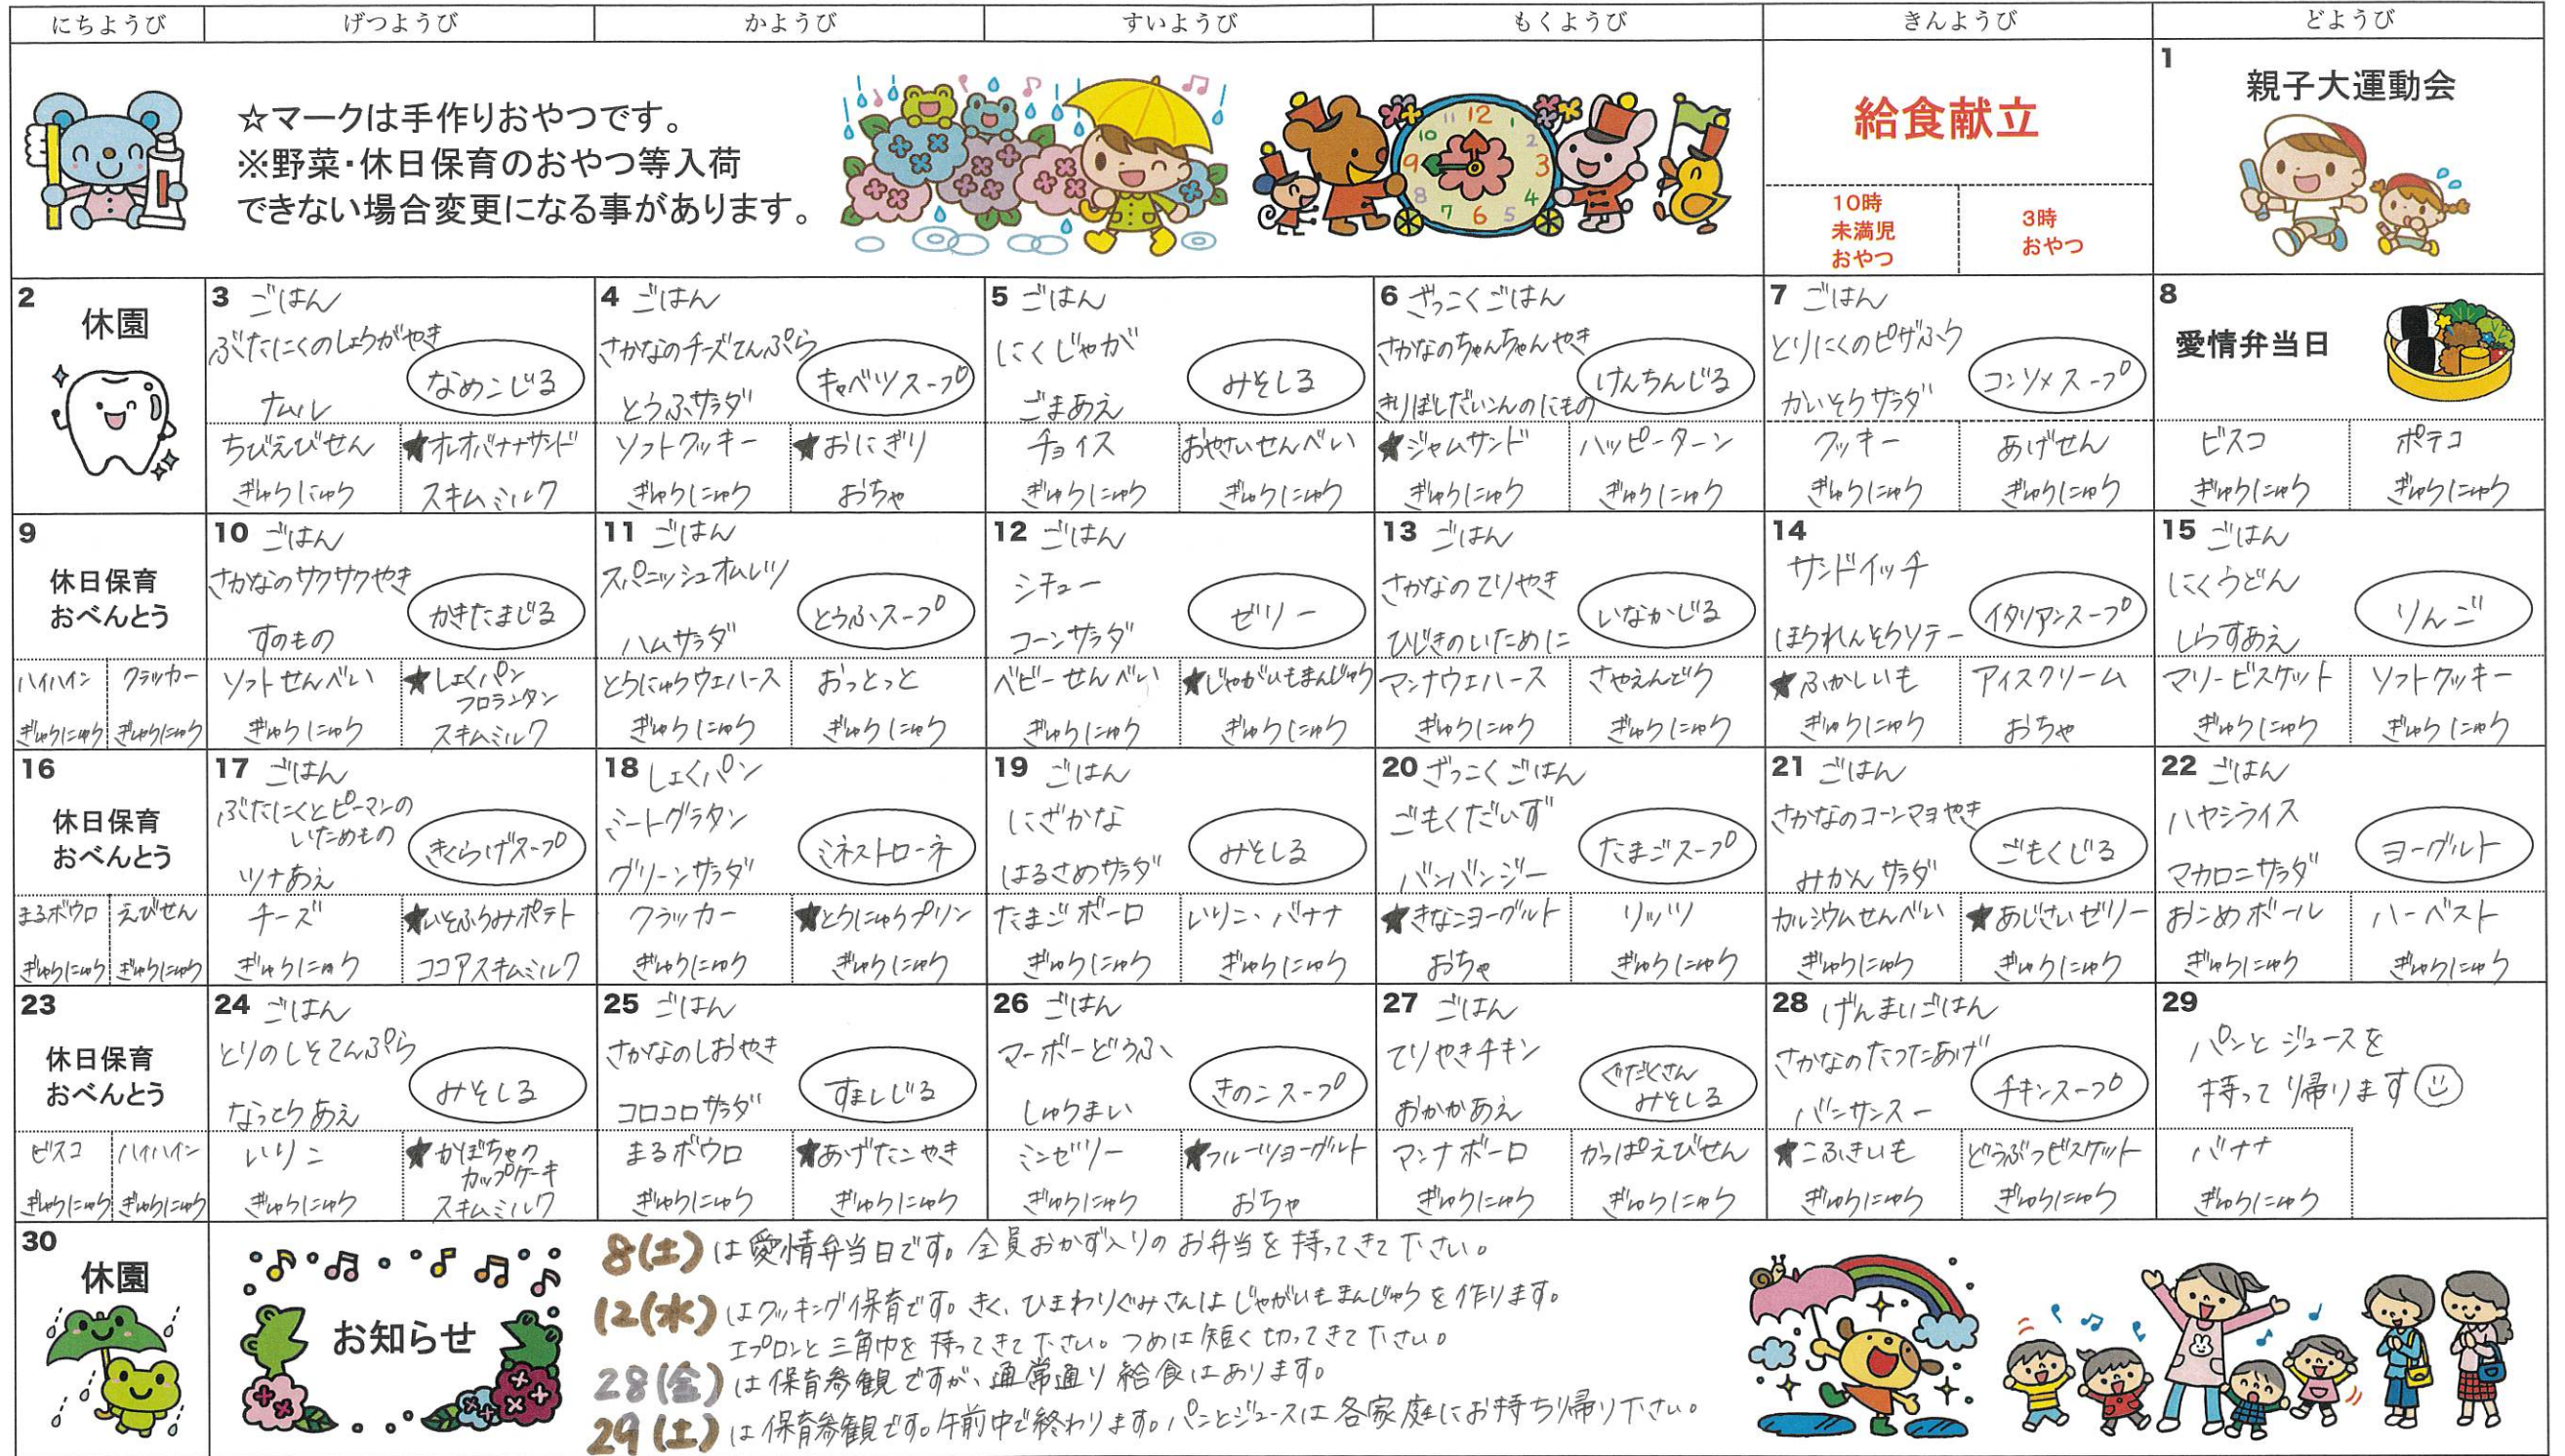 にちようび げつようび かようび すいようび もくようび きんようび どようび
☆マークは手作りおやつです。
※野菜・休日保育のおやつ等入荷
できない場合変更になる事があります。
給食献立
10時
未満児
おやつ
3時
おやつ
1
親子大運動会
2
休園
3 ごはん
ぶたにくのしょうがやき
なめこじる
ナムル
ちびえびせん
ぎゅうにゅう
★オレオバナナサンド
スキムミルク
4 ごはん
さかなのチーズてんぷら
キャベツスープ
とうふサラダ
ソフトクッキー
ぎゅうにゅう
★おにぎり
おちゃ
5 ごはん
にくじゃが
みそしる
ごまあえ
チョイス
ぎゅうにゅう
おやさいせんべい
ぎゅうにゅう
6 ざっこくごはん
さかなのちゃんちゃんやき
けんちんじる
きりぼしだいこんのにもの
★ジャムサンド
ぎゅうにゅう
ハッピーターン
ぎゅうにゅう
7 ごはん
とりにくのピザふう
コンソメスープ
かいそうサラダ
クッキー
ぎゅうにゅう
あげせん
ぎゅうにゅう
8
愛情弁当日
ビスコ
ぎゅうにゅう
ポテコ
ぎゅうにゅう
9
休日保育
おべんとう
ハイハイン
ぎゅうにゅう
クラッカー
ぎゅうにゅう
10 ごはん
さかなのサクサクやき
かきたまじる
すのもの
ソフトせんべい
ぎゅうにゅう
★しょくパン
フロランタン
スキムミルク
11 ごはん
スパニッシュオムレツ
とうふスープ
ハムサラダ
とうにゅうウエハース
ぎゅうにゅう
おっとっと
ぎゅうにゅう
12 ごはん
シチュー
ゼリー
コーンサラダ
ベビーせんべい
ぎゅうにゅう
★じゃがいもまんじゅう
ぎゅうにゅう
13 ごはん
さかなのてりやき
いなかじる
ひじきのいために
マンナウエハース
ぎゅうにゅう
さやえんどう
ぎゅうにゅう
14
サンドイッチ
イタリアンスープ
ほうれんそうソテー
★ふかしいも
ぎゅうにゅう
アイスクリーム
おちゃ
15 ごはん
にくうどん
りんご
しらすあえ
マリービスケット
ぎゅうにゅう
ソフトクッキー
ぎゅうにゅう
16
休日保育
おべんとう
まるボウロ
ぎゅうにゅう
えびせん
ぎゅうにゅう
17 ごはん
ぶたにくとピーマンの
いためもの
きくらげスープ
ツナあえ
チーズ
ぎゅうにゅう
★いそふうみポテト
ココアスキムミルク
18 しょくパン
ミートグラタン
ミネストローネ
グリーンサラダ
クラッカー
ぎゅうにゅう
★とうにゅうプリン
ぎゅうにゅう
19 ごはん
にざかな
みそしる
はるさめサラダ
たまごボーロ
ぎゅうにゅう
いりこ、バナナ
ぎゅうにゅう
20 ざっこくごはん
ごもくだいず
たまごスープ
バンバンジー
★きなこヨーグルト
おちゃ
リッツ
ぎゅうにゅう
21 ごはん
さかなのコーンマヨやき
ごもくじる
みかんサラダ
カルシウムせんべい
ぎゅうにゅう
★あじさいゼリー
ぎゅうにゅう
22 ごはん
ハヤシライス
ヨーグルト
マカロニサラダ
おこめボール
ぎゅうにゅう
ハーベスト
ぎゅうにゅう
23
休日保育
おべんとう
ビスコ
ぎゅうにゅう
ハイハイン
ぎゅうにゅう
24 ごはん
とりのしそてんぷら
みそしる
なっとうあえ
いりこ
ぎゅうにゅう
★かぼちゃの
カップケーキ
スキムミルク
25 ごはん
さかなのしおやき
すましじる
コロコロサラダ
まるボウロ
ぎゅうにゅう
★あげたこやき
ぎゅうにゅう
26 ごはん
マーボーどうふ
きのこスープ
しゅうまい
ミンゼリー
ぎゅうにゅう
★フルーツヨーグルト
おちゃ
27 ごはん
てりやきチキン
ぐだくさん
みそしる
おかかあえ
マンナボーロ
ぎゅうにゅう
かっぱえびせん
ぎゅうにゅう
28 げんまいごはん
さかなのたつたあげ
チキンスープ
バンサンスー
★こふきいも
ぎゅうにゅう
どうぶつビスケット
ぎゅうにゅう
29
パンとジュースを
持って帰ります
バナナ
ぎゅうにゅう
30
休園
お知らせ
8(土)は愛情弁当日です。全員おかず入りのお弁当を持ってきて下さい。
12(水)はクッキング保育です。きく、ひまわりぐみさんはじゃがいもまんじゅうを作ります。
エプロンと三角巾を持ってきて下さい。つめは短く切ってきて下さい。
28(金)は保育参観ですが、通常通り給食はあります。
29(土)は保育参観です。午前中で終わります。パンとジュースは各家庭にお持ち帰り下さい。